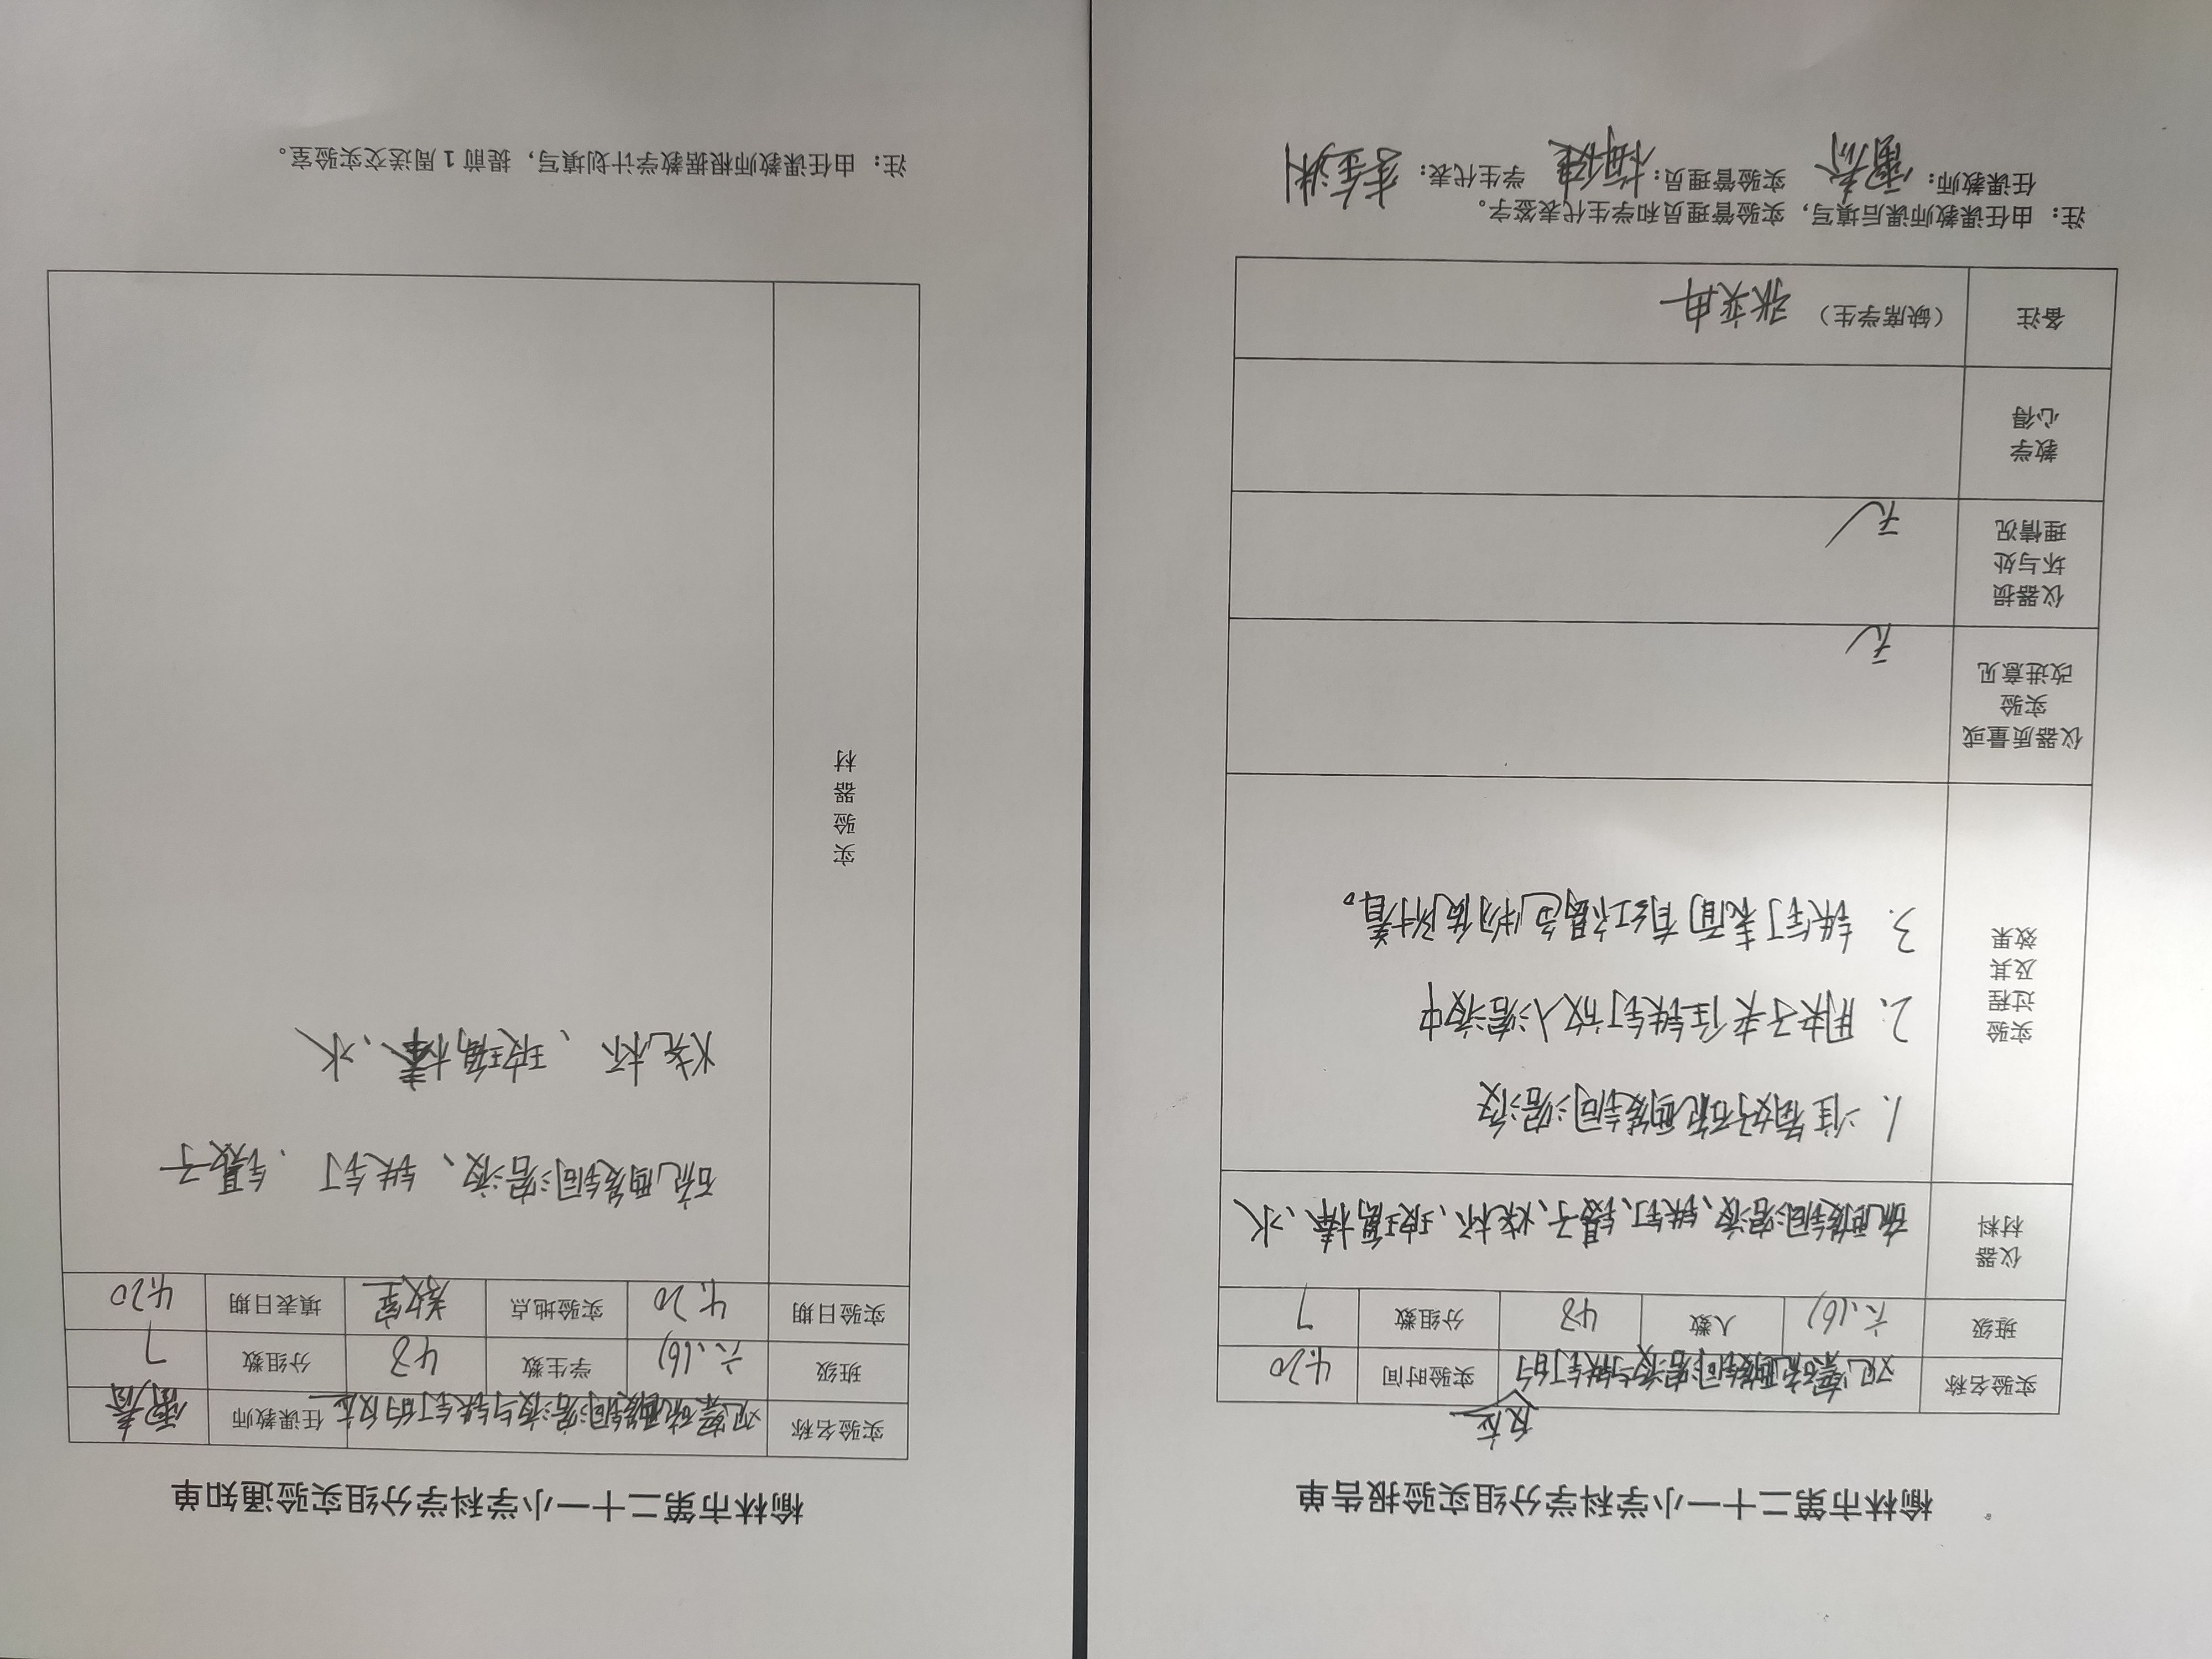 榆林市第二十一小学科学分组实验报告单
实验名称 观察硫酸铜溶液与铁钉的反应 实验时间 4.20
班级 六.(6) 人数 48 分组数 7
仪器材料 硫酸铜溶液、铁钉、镊子、烧杯、玻璃棒、水
实验过程及其效果
1. 准备好硫酸铜溶液
2. 用夹子夹住铁钉放入溶液中
3. 铁钉表面有红褐色物质附着。
仪器质量或实验改进意见 无
仪器损坏与处理情况 无
教学心得
备注 (缺席学生) 张奕冉
注:由任课教师课后填写,实验管理员和学生代表签字。
任课教师: 实验管理员: 学生代表:
榆林市第二十一小学科学分组实验通知单
实验名称 观察硫酸铜溶液与铁钉的反应 任课教师
班级 六.(6) 学生数 48 分组数 7
实验日期 4.20 实验地点 教室 填表日期 4.20
实验器材
硫酸铜溶液、铁钉、镊子
烧杯、玻璃棒、水
注:由任课教师根据教学计划填写,提前1周送交实验室。